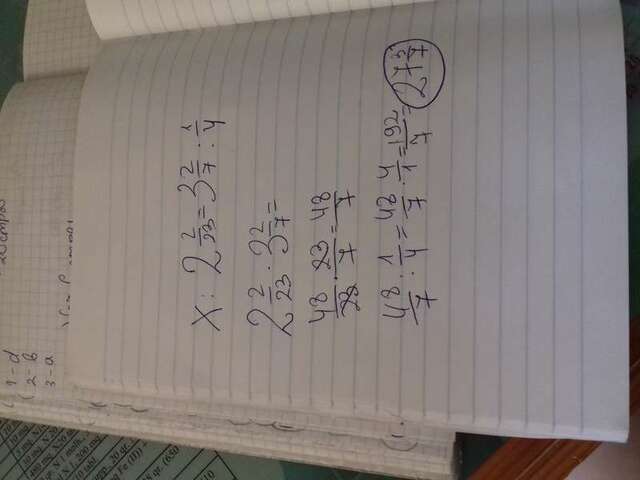 1-d
2-b
3-a
X : 2 2/23 = 3 2/7 : 1/4
2 2/23 · 3 2/7 =
48/23 · 23/7 = 48/7
48/7 : 1/4 = 48/7 · 4/1 = 192/7 = 27 3/7